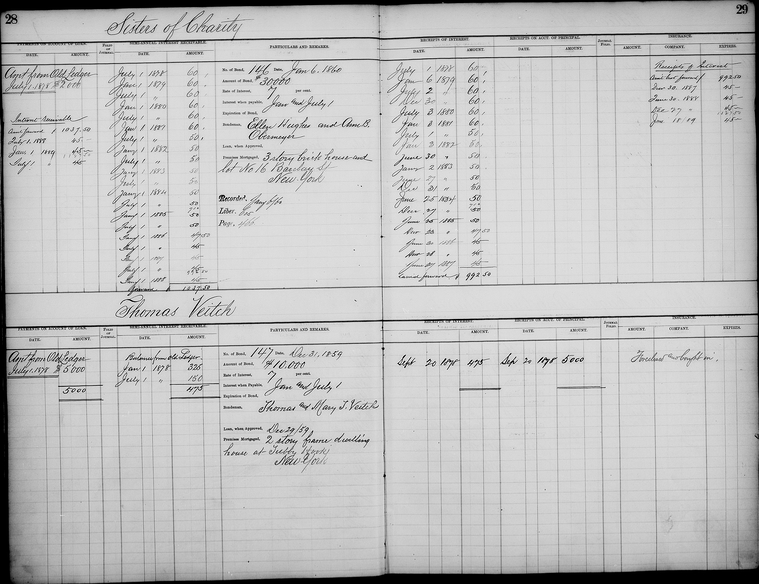 28
Sisters of Charity
29
PAYMENTS ON ACCOUNT OF LOAN.
DATE. AMOUNT.
SEMI-ANNUAL INTEREST RECEIVABLE.
DATE. AMOUNT.
PARTICULARS AND REMARKS.
RECEIPTS OF INTEREST.
DATE. AMOUNT.
RECEIPTS ON ACCT. OF PRINCIPAL.
DATE. AMOUNT.
INSURANCE.
AMOUNT. COMPANY. EXPIRES.
Am't from Old Ledger
July 1. 1878 $2000
Interest receivable
Am't forward 1037.50
July 1. 1888 45-
Jan 1 1889 45-
July 1 " 45
July 1 1878 60
Jan 1 1879 60
July 1 " 60
Jan 1 1880 60
July 1 " 60
Jan 1 1881 60
July 1 " 50
Jany 1 1882 50
July 1 " 50
Jany 1 1883 50
July " 50
Jany 1 1884 50
July 1 " 50
Jany 1 1885 50
July 1 " 50
Jany 1 1886 47.50
July 1 " 45
Jany 1 1887 45
July 1 " 45
Jany 1 1888 45
Forward $ 1037.50
No. of Bond, 146 Date, Jan 6. 1860
Amount of Bond, $30000
Rate of Interest, 7 per cent.
Interest when payable, Jan and July 1
Expiration of Bond,
Bondsmen, Ellen Hughes and Ann B.
Obermeyer
Loan, when Approved,
Premises Mortgaged, 3 story brick house and
lot No 16 Barclay St
New York
Recorded.
Liber.
Page.
July 1 1878 60
Jan 6 1879 60
July 2 " 60
Dec 30 " 60
July 3 1880 60
Jan 3 1881 60
July 1 " 50
Jan 3 1882 50
June 30 " 50
Jany 2 1883 50
June 29 " 50
Dec 31 " 50
June 25 1884 50
Dec 27 " 50
June 25 1885 50
Dec 28 " 47.50
June 30 1886 45
Dec 28 " 45
June 27 1887 45
Carried forward $ 992.50
Receipts of Interest
Am't bro't forward $ 992.50
Dec 30. 1887 45-
June 30. 1888 45-
Dec 27 " 45-
45-
Thomas Veitch
PAYMENTS ON ACCOUNT OF LOAN.
DATE. AMOUNT.
SEMI-ANNUAL INTEREST RECEIVABLE.
DATE. AMOUNT.
PARTICULARS AND REMARKS.
RECEIPTS OF INTEREST.
DATE. AMOUNT.
RECEIPTS ON ACCT. OF PRINCIPAL.
DATE. AMOUNT.
INSURANCE.
AMOUNT. COMPANY. EXPIRES.
Am't from Old Ledger
July 1. 1878 $5000
5000
Balance from Old Ledger.
Jan 1 1878 325
July 1 " 150
475
No. of Bond, 147 Date, Dec 31. 1859
Amount of Bond, $10.000
Rate of Interest, 7 per cent.
Interest when Payable, Jan and July 1
Expiration of Bond,
Bondsmen, Thomas and Mary T. Veitch
Loan, when Approved, Dec 29/59
Premises Mortgaged, 2 story frame dwelling
house at Tubby Hook
New York
Sept 20 1878 475 Sep 20 1878 5000
Foreclosed and bought in.